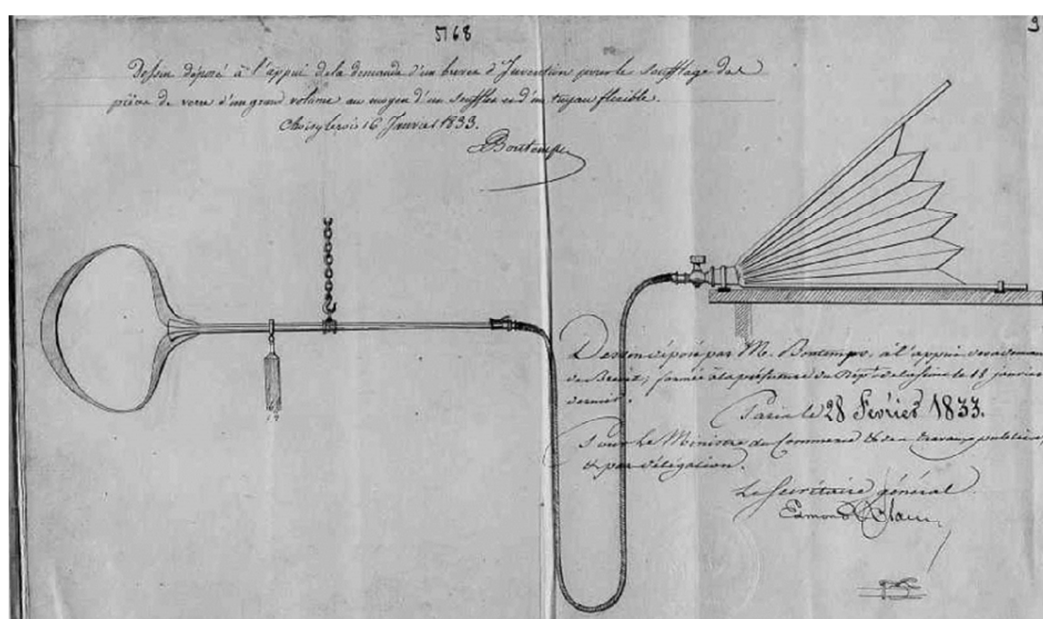 5768
9
Dessin déposé à l'appui de la demande d'un brevet d'Invention pour le soufflage de
pièces de verre d'un grand volume au moyen d'un soufflet et d'un tuyau flexible.
Choisy le roi 16 Janvier 1833.
Bontemps
Dessin déposé par M. Bontemps, à l'appui de sa demande
de Brevet, formée à la préfecture du Dépt de la Seine le 18 janvier
dernier.
Paris le 28 Février 1833.
Pour le Ministre du Commerce & des travaux publics,
& par délégation.
Le Secrétaire général
Edmond Blanc